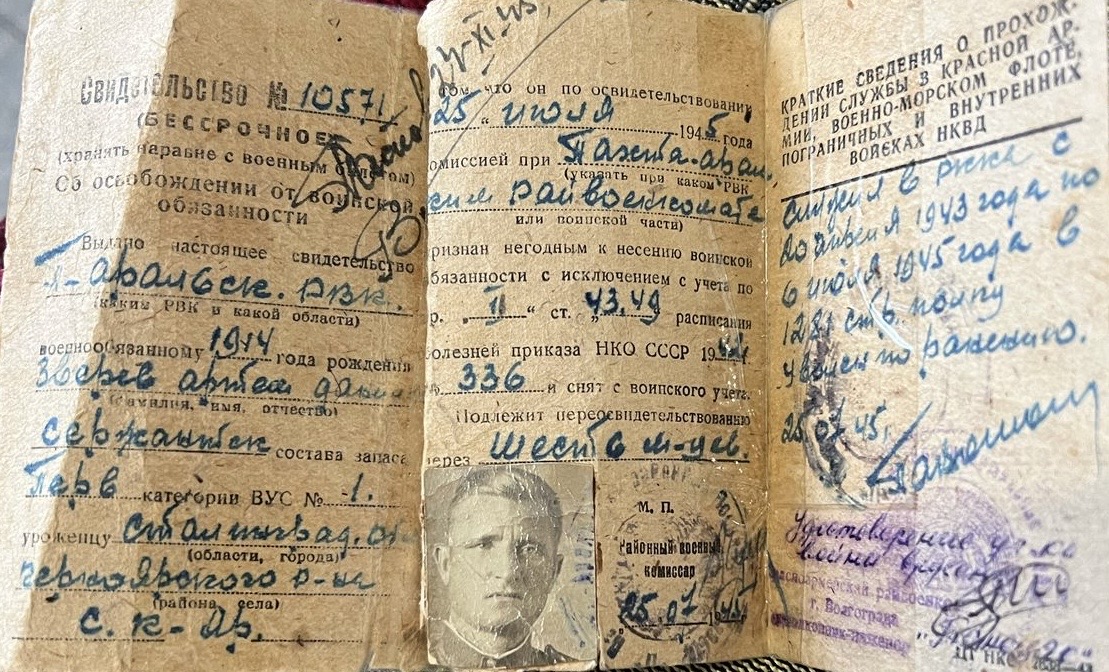 Свидетельство № 10571
(БЕССРОЧНОЕ)
(хранить наравне с военным билетом)
Об освобождении от воинской
обязанности
Выдано настоящее свидетельство
П-Аральск. РВК.
(каким РВК и какой области)
военнообязанному 1914 года рождения
Зверев Артем
(фамилия, имя, отчество)
сержантск состава запаса
Перв категории ВУС № 1.
уроженцу Сталинград. об
(области, города)
Черноярского р-на
(района, села)
с. К-Яр.
27-XI-45
том, что он по освидетельствовании
25 " июля 1945 года
омиссией при Пахта-Арал.
(указать при каком РВК
ским Райвоенкомате
или воинской части)
ризнан негодным к несению воинской
бязанности с исключением с учета по
р. „II“ ст. „43.49 расписания
болезней приказа НКО СССР 1942
№ 336 и снят с воинского учета.
Подлежит переосвидетельствованию
через Шесть м-цев.
М. П.
Районный военный
комиссар
25.07 1945
КРАТКИЕ СВЕДЕНИЯ О ПРОХОЖ-
ДЕНИИ СЛУЖБЫ В КРАСНОЙ АР-
МИИ, ВОЕННО-МОРСКОМ ФЛОТЕ,
ПОГРАНИЧНЫХ И ВНУТРЕННИХ
ВОЙСКАХ НКВД
Служил в РККА с
20 апреля 1943 года по
6 июля 1945 года в
1281 стр. полку
уволен по ранению.
25.07.45г.
Удостоверение
войны
г. Волгограда